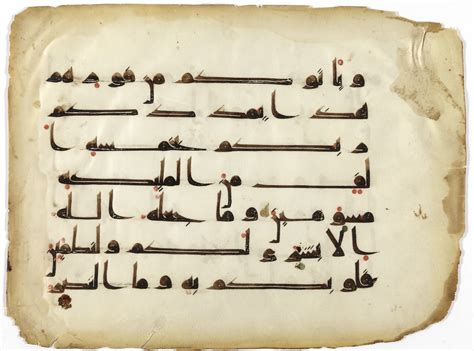 وياتوكم من فورهم
هذا يمددكم
ربكم بخمسة ا
لف من الملئكة
مسومين وما جعله الله
الا بشرى لكم ولتطمئن
قلوبكم به وما النصر